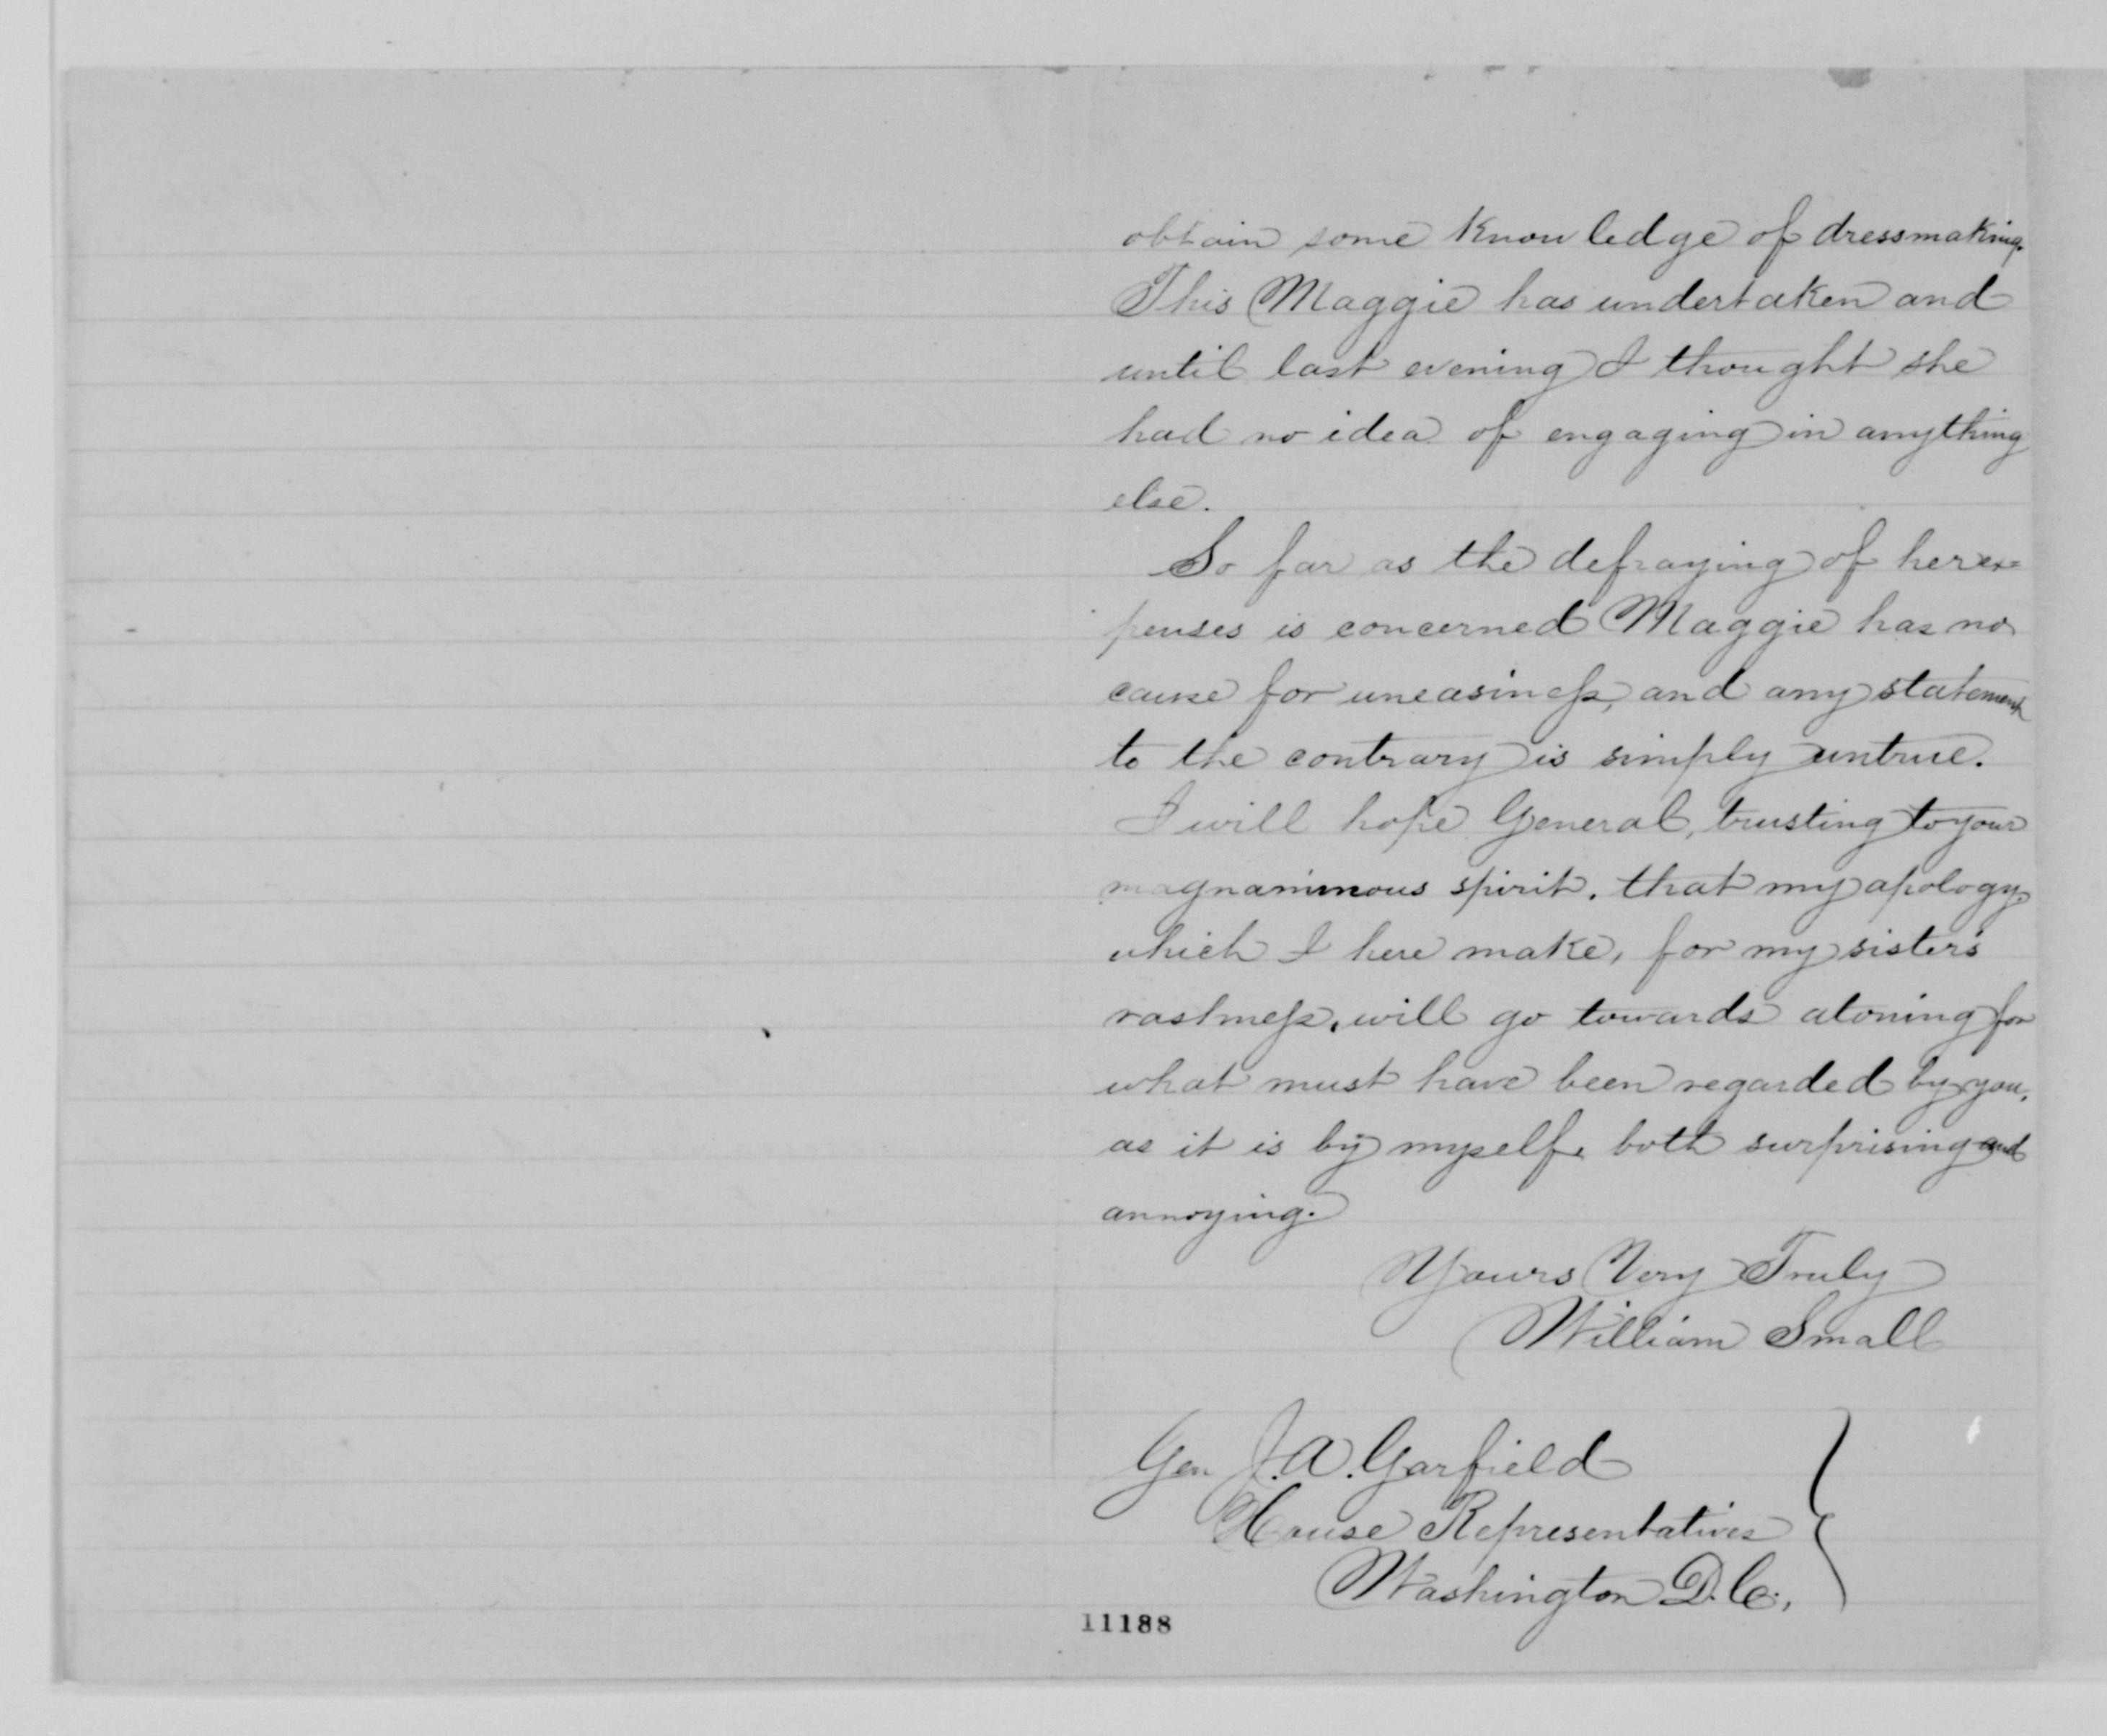 obtain some knowledge of dressmaking.
This Maggie has undertaken and
until last evening I thought she
had no idea of engaging in anything
else.
So far as the defraying of her ex=
penses is concerned Maggie has no
cause for uneasiness, and any statement
to the contrary is simply untrue.
I will hope General, trusting to your
magnanimous spirit, that my apology,
which I here make, for my sister's
rashness, will go towards atoning for
what must have been regarded by you,
as it is by myself, both surprising and
annoying.
Yours Very Truly
William Small
Gen J. A. Garfield
House Representatives
Washington D. C.,
11188